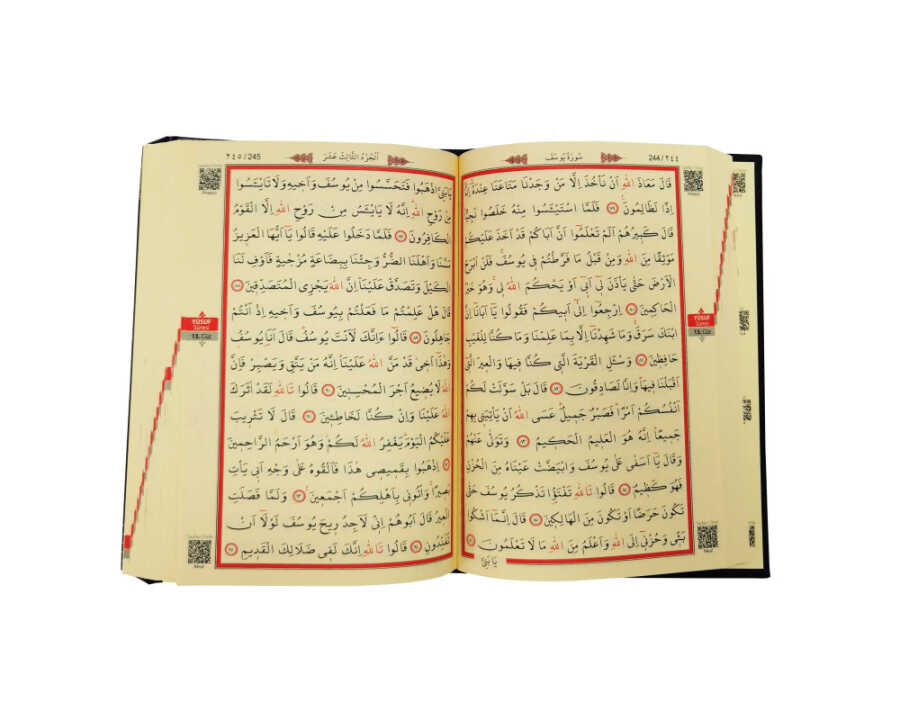 سُورَةُ يُوسُفَ
244/٢٤٤
قَالَ مَعَاذَ اللهِ اَنْ نَأْخُذَ اِلَّا مَنْ وَجَدْنَا مَتَاعَنَا عِنْدَهُٓ اِنَّٓا
اِذًا لَظَالِمُونَ ﴿٧٩﴾ فَلَمَّا اسْتَيْـَٔسُوا مِنْهُ خَلَصُوا نَجِيًّا
قَالَ كَبِيرُهُمْ اَلَمْ تَعْلَمُٓوا اَنَّ اَبَاكُمْ قَدْ اَخَذَ عَلَيْكُمْ
مَوْثِقًا مِنَ اللهِ وَمِنْ قَبْلُ مَا فَرَّطْتُمْ فِي يُوسُفَ فَلَنْ اَبْرَحَ
الْاَرْضَ حَتّٰى يَأْذَنَ لِٓي اَبِٓي اَوْ يَحْكُمَ اللهُ لِي وَهُوَ خَيْرُ
الْحَاكِمِينَ ﴿٨٠﴾ اِرْجِعُٓوا اِلٰٓى اَبِيكُمْ فَقُولُوا يَٓا اَبَانَٓا اِنَّ
ابْنَكَ سَرَقَ وَمَا شَهِدْنَٓا اِلَّا بِمَا عَلِمْنَا وَمَا كُنَّا لِلْغَيْبِ
حَافِظِينَ ﴿٨١﴾ وَسْـَٔلِ الْقَرْيَةَ الَّتِي كُنَّا فِيهَا وَالْعِيرَ الَّتِٓي
اَقْبَلْنَا فِيهَا وَاِنَّا لَصَادِقُونَ ﴿٨٢﴾ قَالَ بَلْ سَوَّلَتْ لَكُمْ
اَنْفُسُكُمْ اَمْرًا فَصَبْرٌ جَمِيلٌ عَسَى اللهُ اَنْ يَأْتِيَنِي بِهِمْ
جَمِيعًا اِنَّهُ هُوَ الْعَلِيمُ الْحَكِيمُ ﴿٨٣﴾ وَتَوَلّٰى عَنْهُمْ
وَقَالَ يَٓا اَسَفٰى عَلٰى يُوسُفَ وَابْيَضَّتْ عَيْنَاهُ مِنَ الْحُزْنِ
فَهُوَ كَظِيمٌ ﴿٨٤﴾ قَالُوا تَاللهِ تَفْتَؤُ۬ا تَذْكُرُ يُوسُفَ حَتّٰى
تَكُونَ حَرَضًا اَوْ تَكُونَ مِنَ الْهَالِكِينَ ﴿٨٥﴾ قَالَ اِنَّمَٓا اَشْكُوا
بَثِّي وَحُزْنِٓي اِلَى اللهِ وَاَعْلَمُ مِنَ اللهِ مَا لَا تَعْلَمُونَ ﴿٨٦﴾
يَا بَنِيَّ
YÛSUF
Sûresi
13. Cüz
Meal
اَلْجُزْءُ الثَّالِثَ عَشَرَ
٢٤٥/245
يَا بَنِيَّ اذْهَبُوا فَتَحَسَّسُوا مِنْ يُوسُفَ وَاَخِيهِ وَلَا تَايْـَٔسُوا
مِنْ رَوْحِ اللهِ اِنَّهُ لَا يَايْـَٔسُ مِنْ رَوْحِ اللهِ اِلَّا الْقَوْمُ
الْكَافِرُونَ ﴿٨٧﴾ فَلَمَّا دَخَلُوا عَلَيْهِ قَالُوا يَٓا اَيُّهَا الْعَزِيزُ
مَسَّنَا وَاَهْلَنَا الضُّرُّ وَجِئْنَا بِبِضَاعَةٍ مُزْجٰيةٍ فَاَوْفِ لَنَا
الْكَيْلَ وَتَصَدَّقْ عَلَيْنَا اِنَّ اللهَ يَجْزِي الْمُتَصَدِّقِينَ ﴿٨٨﴾
قَالَ هَلْ عَلِمْتُمْ مَا فَعَلْتُمْ بِيُوسُفَ وَاَخِيهِ اِذْ اَنْتُمْ
جَاهِلُونَ ﴿٨٩﴾ قَالُٓوا ءَاِنَّكَ لَاَنْتَ يُوسُفُ قَالَ اَنَا۬ يُوسُفُ
وَهٰذَٓا اَخِي قَدْ مَنَّ اللهُ عَلَيْنَا اِنَّهُ مَنْ يَتَّقِ وَيَصْبِرْ فَاِنَّ
اللهَ لَا يُضِيعُ اَجْرَ الْمُحْسِنِينَ ﴿٩٠﴾ قَالُوا تَاللهِ لَقَدْ اٰثَرَكَ
اللهُ عَلَيْنَا وَاِنْ كُنَّا لَخَاطِـِٔينَ ﴿٩١﴾ قَالَ لَا تَثْرِيبَ
عَلَيْكُمُ الْيَوْمَ يَغْفِرُ اللهُ لَكُمْ وَهُوَ اَرْحَمُ الرَّاحِمِينَ
﴿٩٢﴾ اِذْهَبُوا بِقَمِيصِي هٰذَا فَاَلْقُوهُ عَلٰى وَجْهِ اَبِي يَأْتِ
بَصِيرًا وَأْتُونِي بِاَهْلِكُمْ اَجْمَعِينَ ﴿٩٣﴾ وَلَمَّا فَصَلَتِ
الْعِيرُ قَالَ اَبُوهُمْ اِنِّي لَاَجِدُ رِيحَ يُوسُفَ لَوْلَٓا اَنْ
تُفَنِّدُونِ ﴿٩٤﴾ قَالُوا تَاللهِ اِنَّكَ لَفِي ضَلَالِكَ الْقَدِيمِ ﴿٩٥﴾
YÛSUF
Sûresi
13. Cüz
Meal